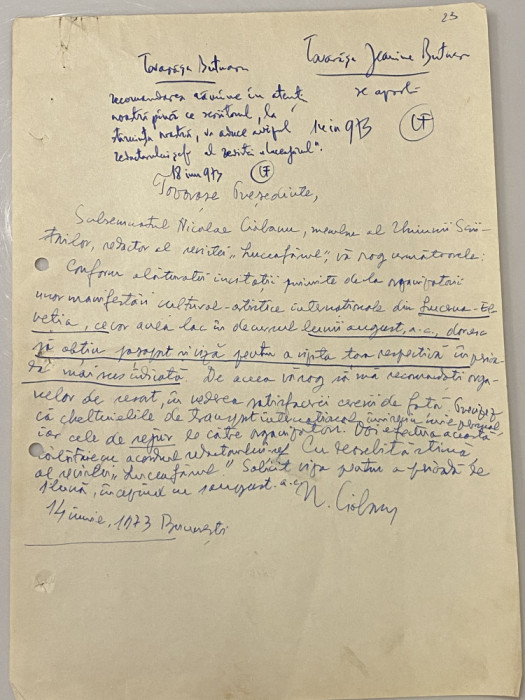 23
Tovarășa Butnaru
recomandarea rămâne în atenți
noastră până ce scriitorul, la
stăruința noastră, va aduce avizul
redactorului șef al revistei „Luceafărul".
18 iun 973
Tovarășa Jeanine Butnaru
se aprobă
14 in 973
Tovarășe Președinte,
Subsemnatul Nicolae Ciobanu, membru al Uniunii Scrii-
torilor, redactor al revistei „Luceafărul", vă rog următoarele:
Conform alăturatei invitații primite de la organizatorii
unor manifestări cultural-artistice internationale din Lucerna-El-
veția, ce cor avea loc în decursul lunii august, a.c., doresc
să obțin pașaport și viză pentru a vizita țara respectivă în perioa-
dă mai sus indicată. De aceea vă rog să mă recomandați orga-
nelor de resort, în vederea satisfacerii cererii de față. Precizez
că cheltuielile de transport international mă privesc personal
iar cele de sejur pe către organizatori. Voi efectua această
călătorie cu acordul redactorului-șef Cu deosebită stimă
al revistei „Luceafărul" Solicit viza pentru o perioadă de
1 lună, începând cu 1 august a.c.
N. Ciobanu
14 iunie, 1973 București